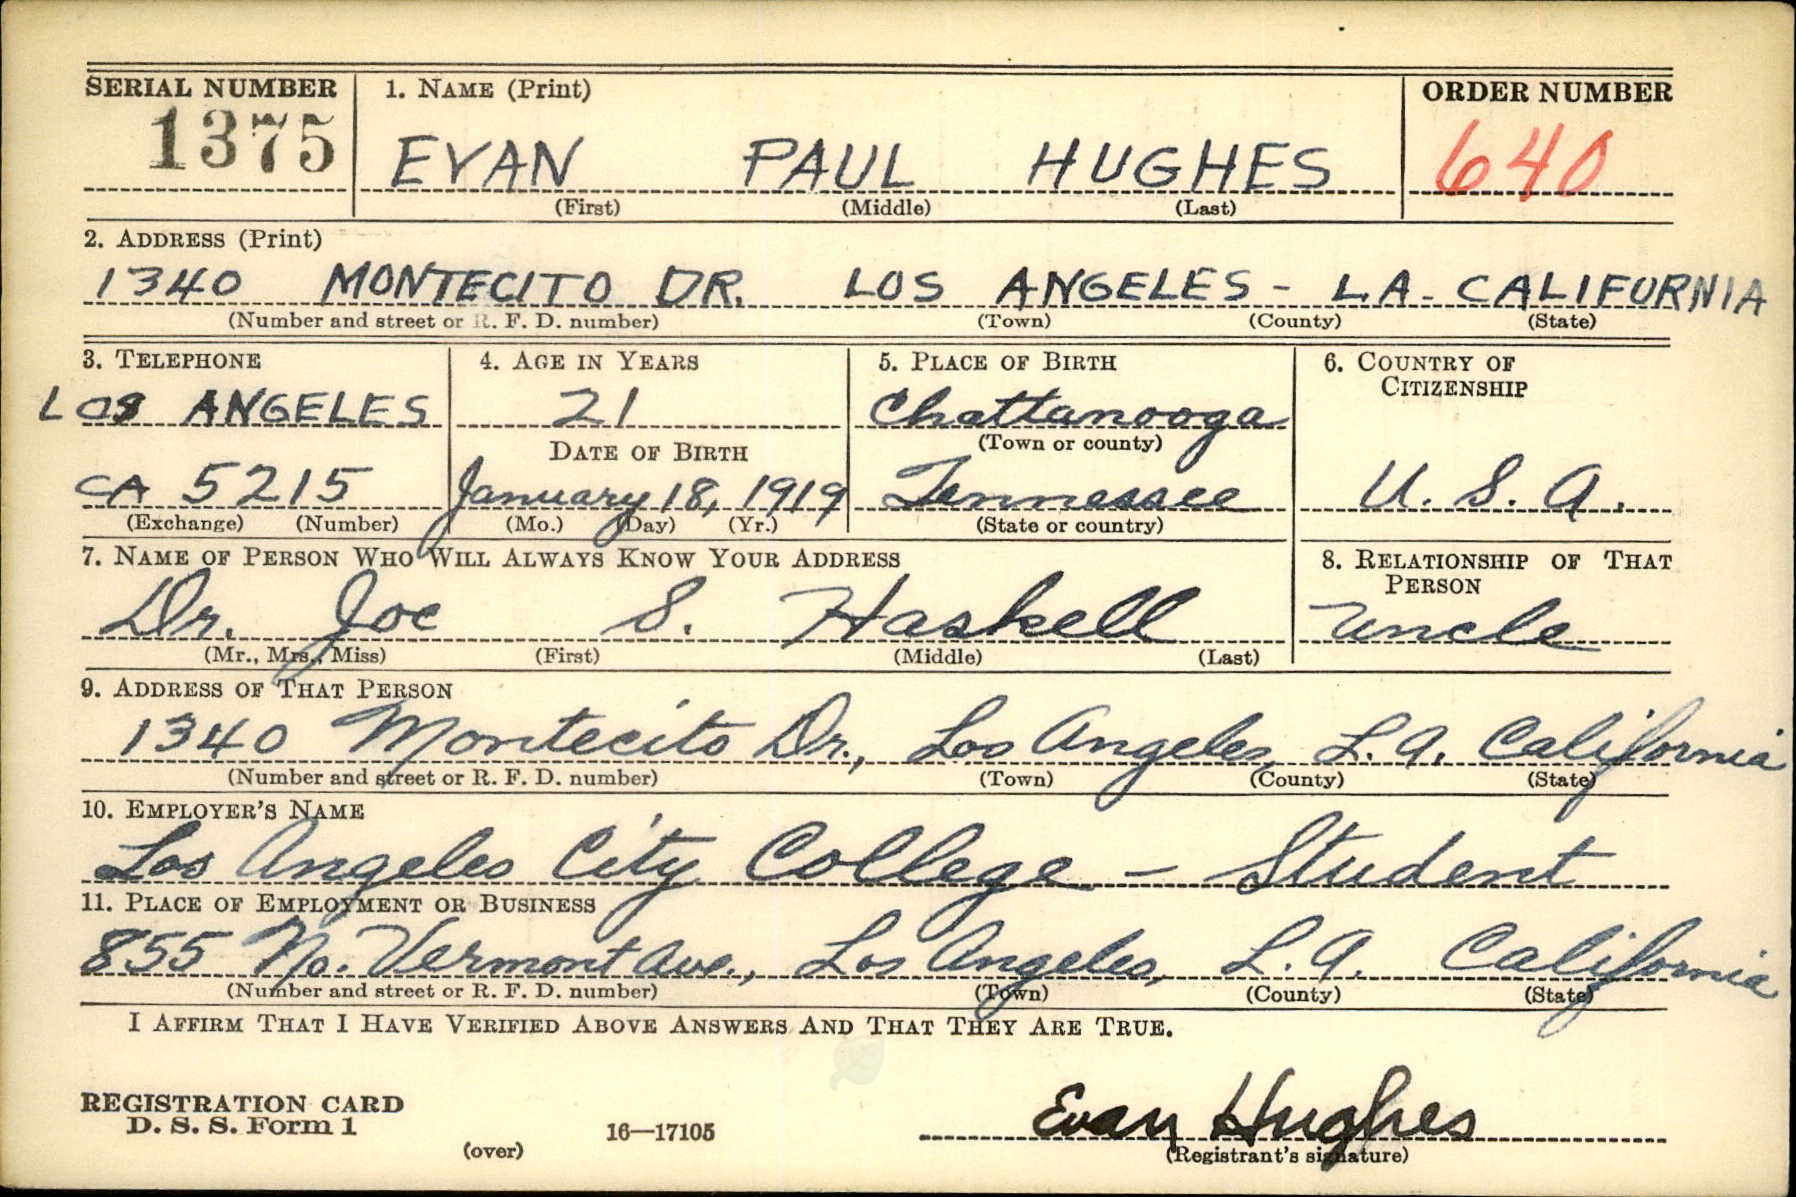 SERIAL NUMBER 1. NAME (Print) ORDER NUMBER
1375 EVAN PAUL HUGHES 640
(First) (Middle) (Last)
2. ADDRESS (Print)
1340 MONTECITO DR. LOS ANGELES - L.A. CALIFORNIA
(Number and street or R. F. D. number) (Town) (County) (State)
3. TELEPHONE 4. AGE IN YEARS 5. PLACE OF BIRTH 6. COUNTRY OF
CITIZENSHIP
LOS ANGELES 21 Chattanooga
(Town or county)
DATE OF BIRTH
CA 5215 January 18, 1919 Tennessee U. S. A.
(Exchange) (Number) (Mo.) (Day) (Yr.) (State or country)
7. NAME OF PERSON WHO WILL ALWAYS KNOW YOUR ADDRESS 8. RELATIONSHIP OF THAT
PERSON
Dr. Joe S. Haskell Uncle
(Mr., Mrs., Miss) (First) (Middle) (Last)
9. ADDRESS OF THAT PERSON
1340 Montecito Dr., Los Angeles, L.A. California
(Number and street or R. F. D. number) (Town) (County) (State)
10. EMPLOYER'S NAME
Los Angeles City College - Student
11. PLACE OF EMPLOYMENT OR BUSINESS
855 No. Vermont Ave., Los Angeles, L.A. California
(Number and street or R. F. D. number) (Town) (County) (State)
I AFFIRM THAT I HAVE VERIFIED ABOVE ANSWERS AND THAT THEY ARE TRUE.
REGISTRATION CARD
D. S. S. Form 1
(over) 16—17105 Evan Hughes
(Registrant's signature)